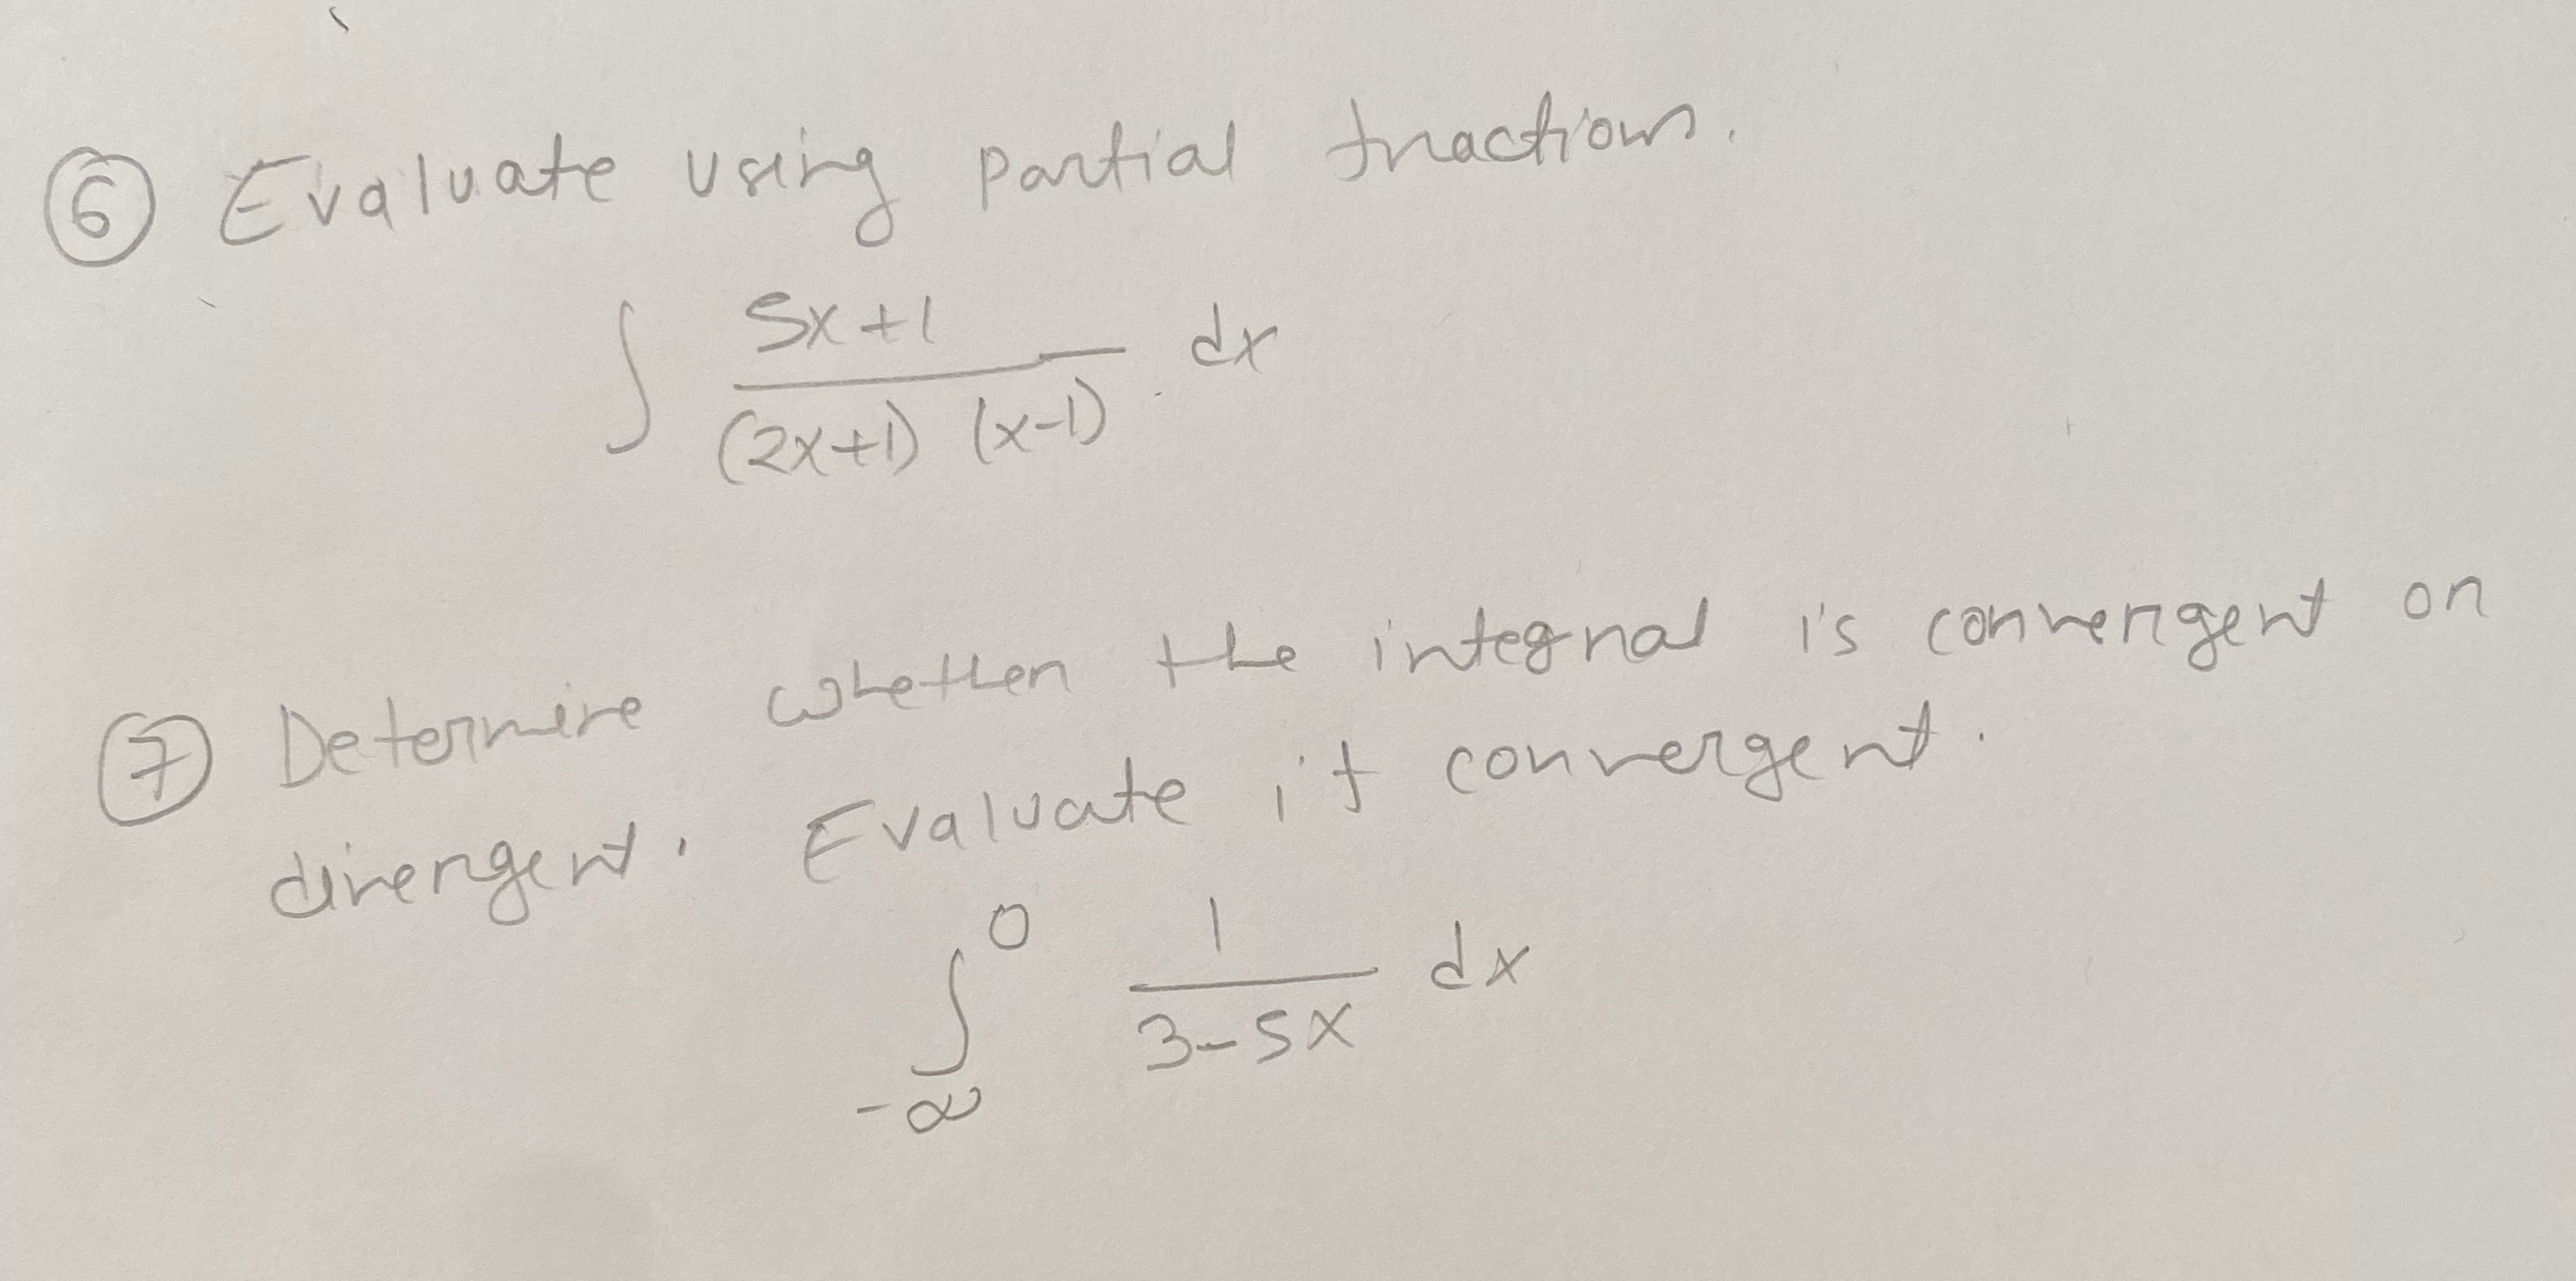 ⑥ Evaluate using partial fractions.
∫ (5x+1)/((2x+1)(x-1)) dx
⑦ Determine whether the integral is convergent or
divergent. Evaluate if convergent.
∫_{-∞}^{0} 1/(3-5x) dx